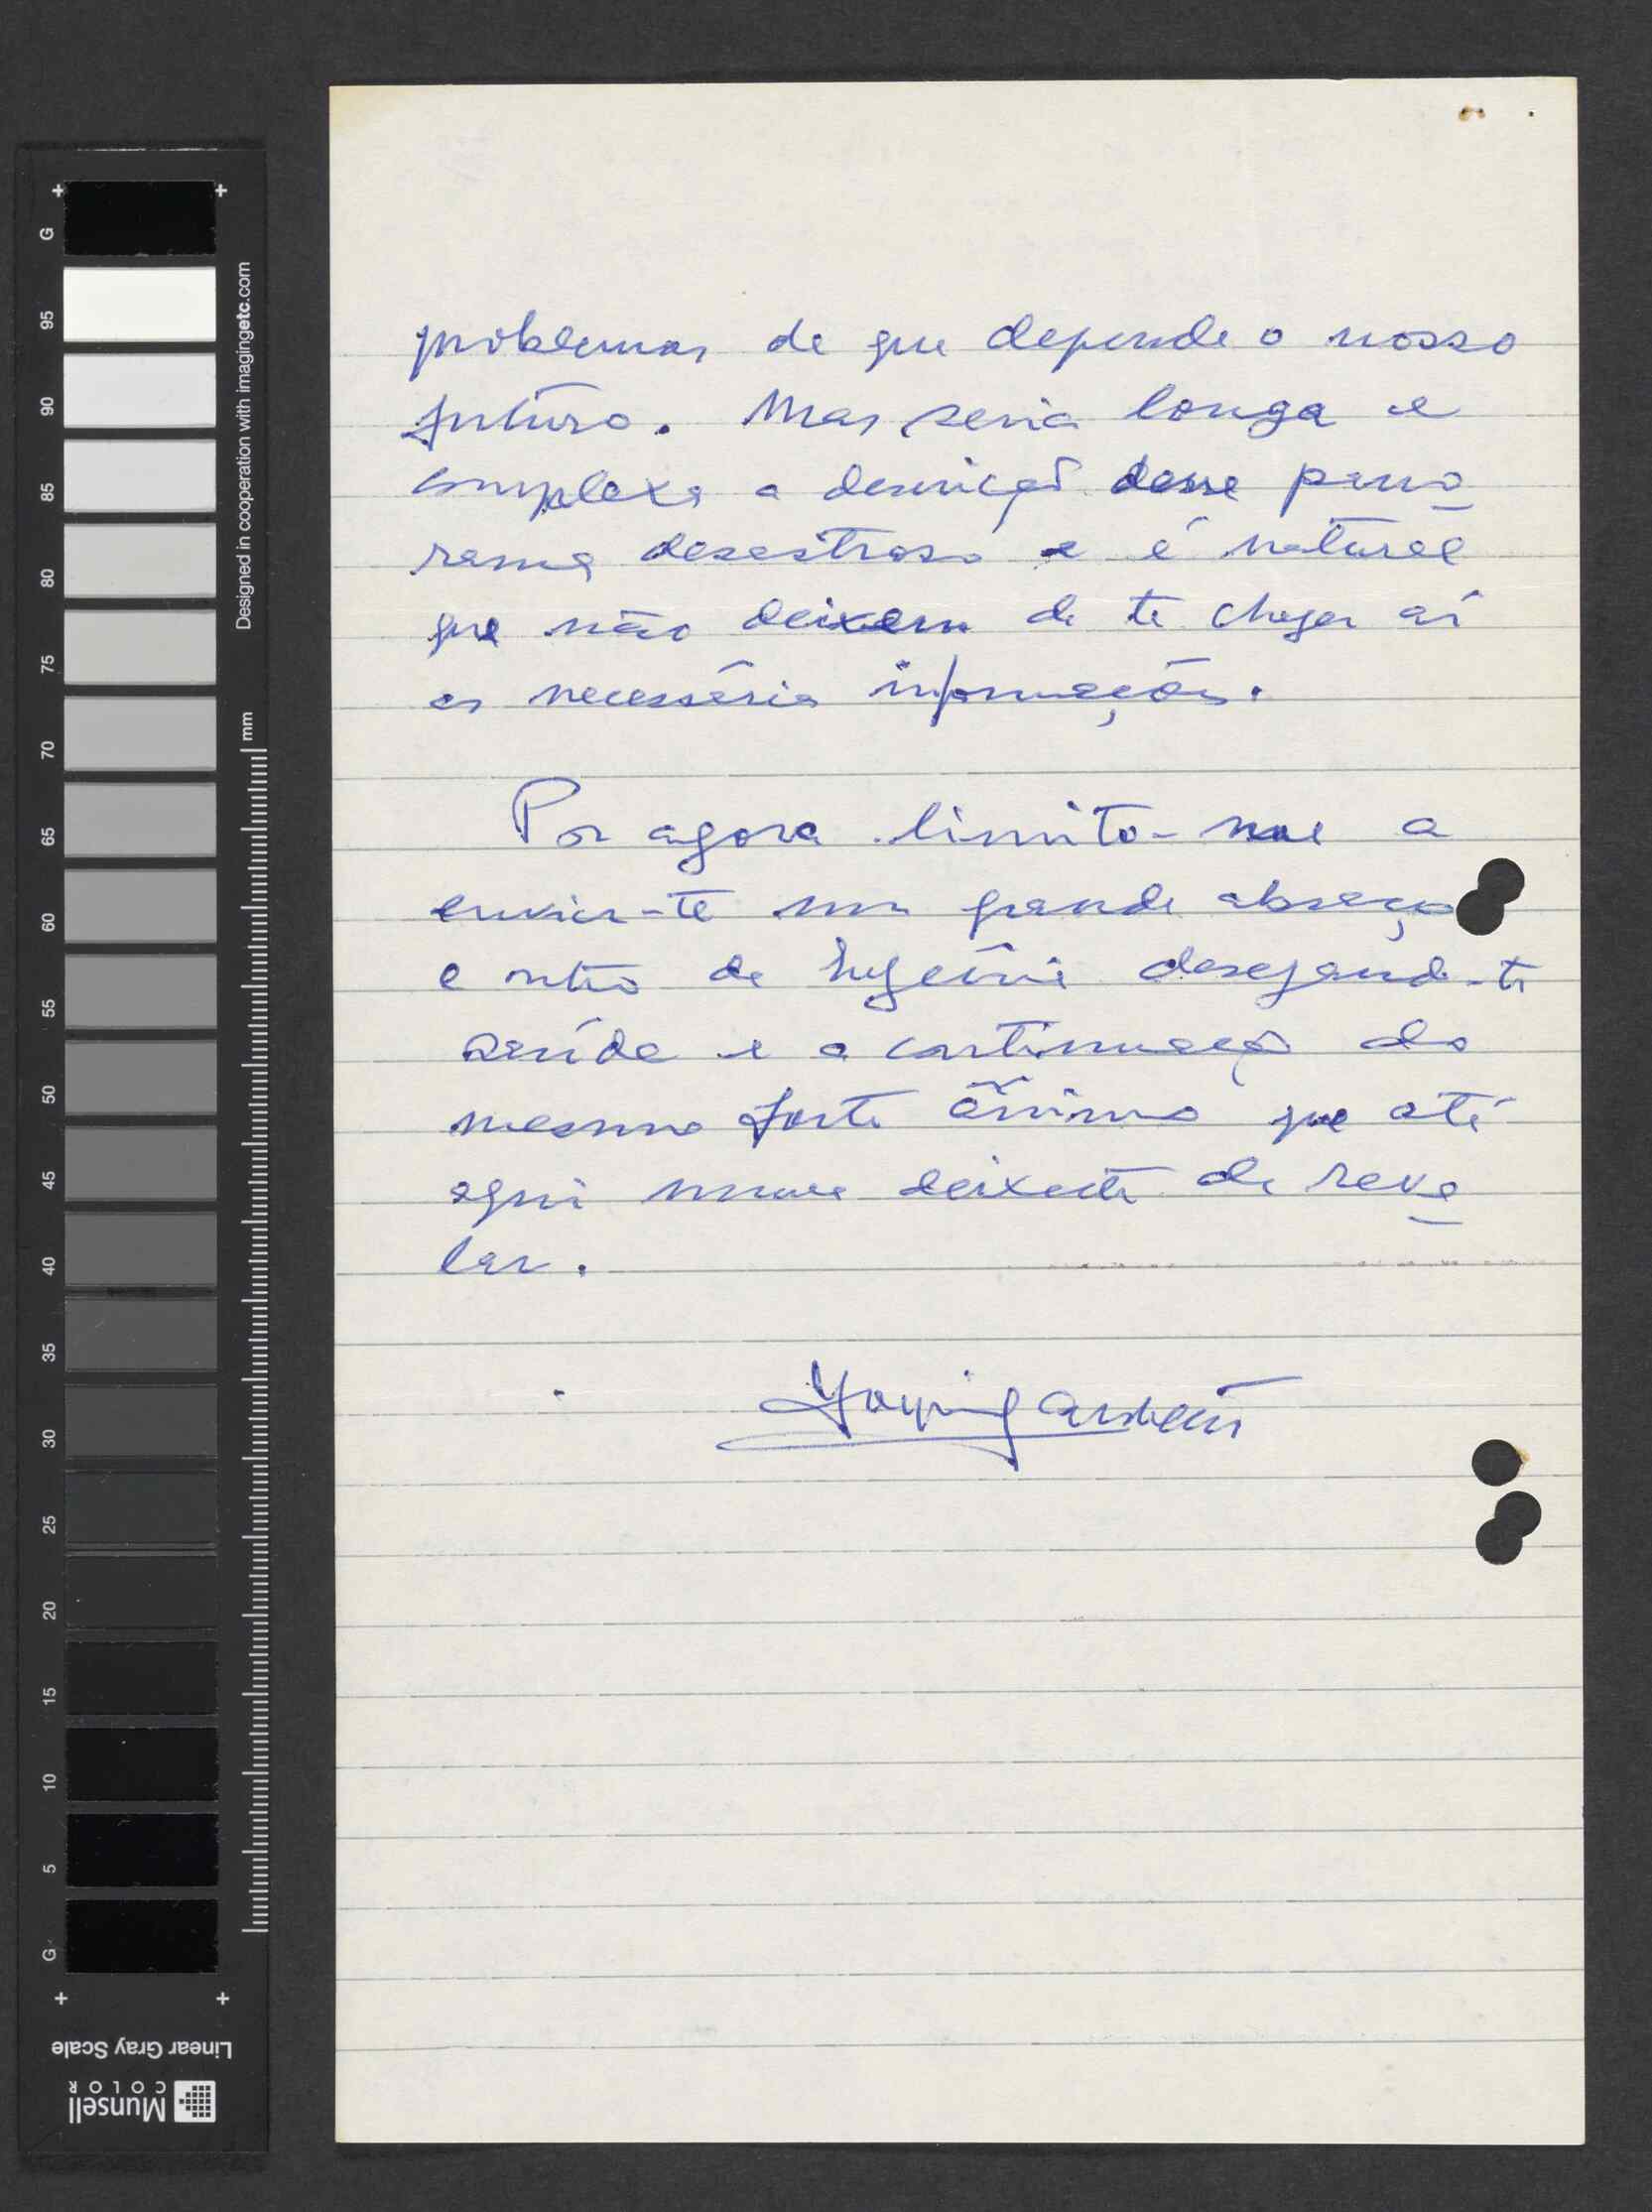 problemas de que depende o nosso
futuro. Mas seria longa e
complexa a descrição desse pano
rama desastroso e é natural
que não deixem de te chegar aí
as necessárias informações.
Por agora limito-me a
enviar-te um grande abraço
e outro da Eugénia desejando-te
saúde e a continuação do
mesmo forte ânimo que até
aqui nunca deixaste de reve
lar.
G
95
90
85
80
75
70
65
60
55
50
45
40
35
30
25
20
15
10
5
G
Designed in cooperation with imagingetc.com
mm
Linear Gray Scale
Munsell
COLOR